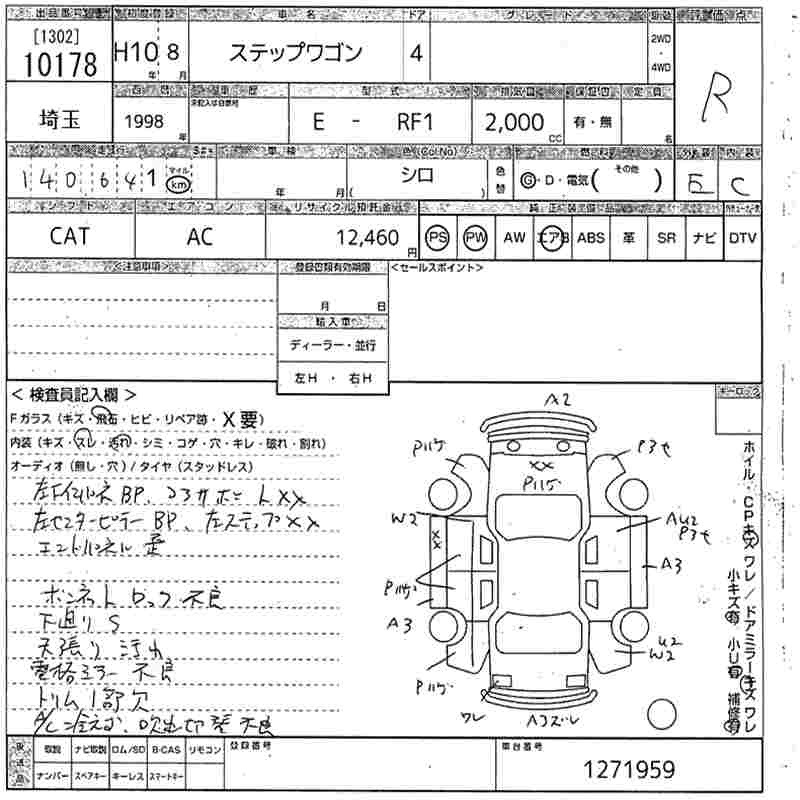 出品番号 初度登録 車名 ドア グレード 駆動 評価点
[1302]
10178 H10年 8月 ステップワゴン 4 2WD・4WD R
埼玉 1998年 型式 E - RF1 排気量 2,000CC 有・無 定員 名
走行 車検 色(Col No) 燃料 外装 内装
140,641 マイル km 年 月 シロ 色替 G・D・電気( その他 ) E C
シフト エアコン リサイクル預託金
CAT AC 12,460円 PS PW AW エアB ABS 革 SR ナビ DTV
<注意事項> 登録書類有効期限 <セールスポイント>
月 日
輸入車
ディーラー・並行
左H ・ 右H
< 検査員記入欄 > キーロック
Fガラス (キズ・飛石・ヒビ・リペア跡・X要)
内装 (キズ・スレ・汚れ・シミ・コゲ・穴・キレ・破れ・割れ)
オーディオ (無し・穴) / タイヤ (スタッドレス)
左センターピラーBP、左ステップXX
エンドパネル 歪
ボンネットロック不良
下廻りS
天張り汚れ
電格ミラー不良
トリム1部欠
A/C冷えず、吹出切替不良
A2
XX
W2
XX
A3
A3
AU2
U2
W2
ワレ
A3ズレ
ホイル・CPキズワレ / ドアミラーキズワレ
小キズ有 小U有 補修有
取説 ナビ取説 ロム/SD B-CAS リモコン 登録番号 車台番号
ナンバー スペアキー キーレス スマートキー 1271959